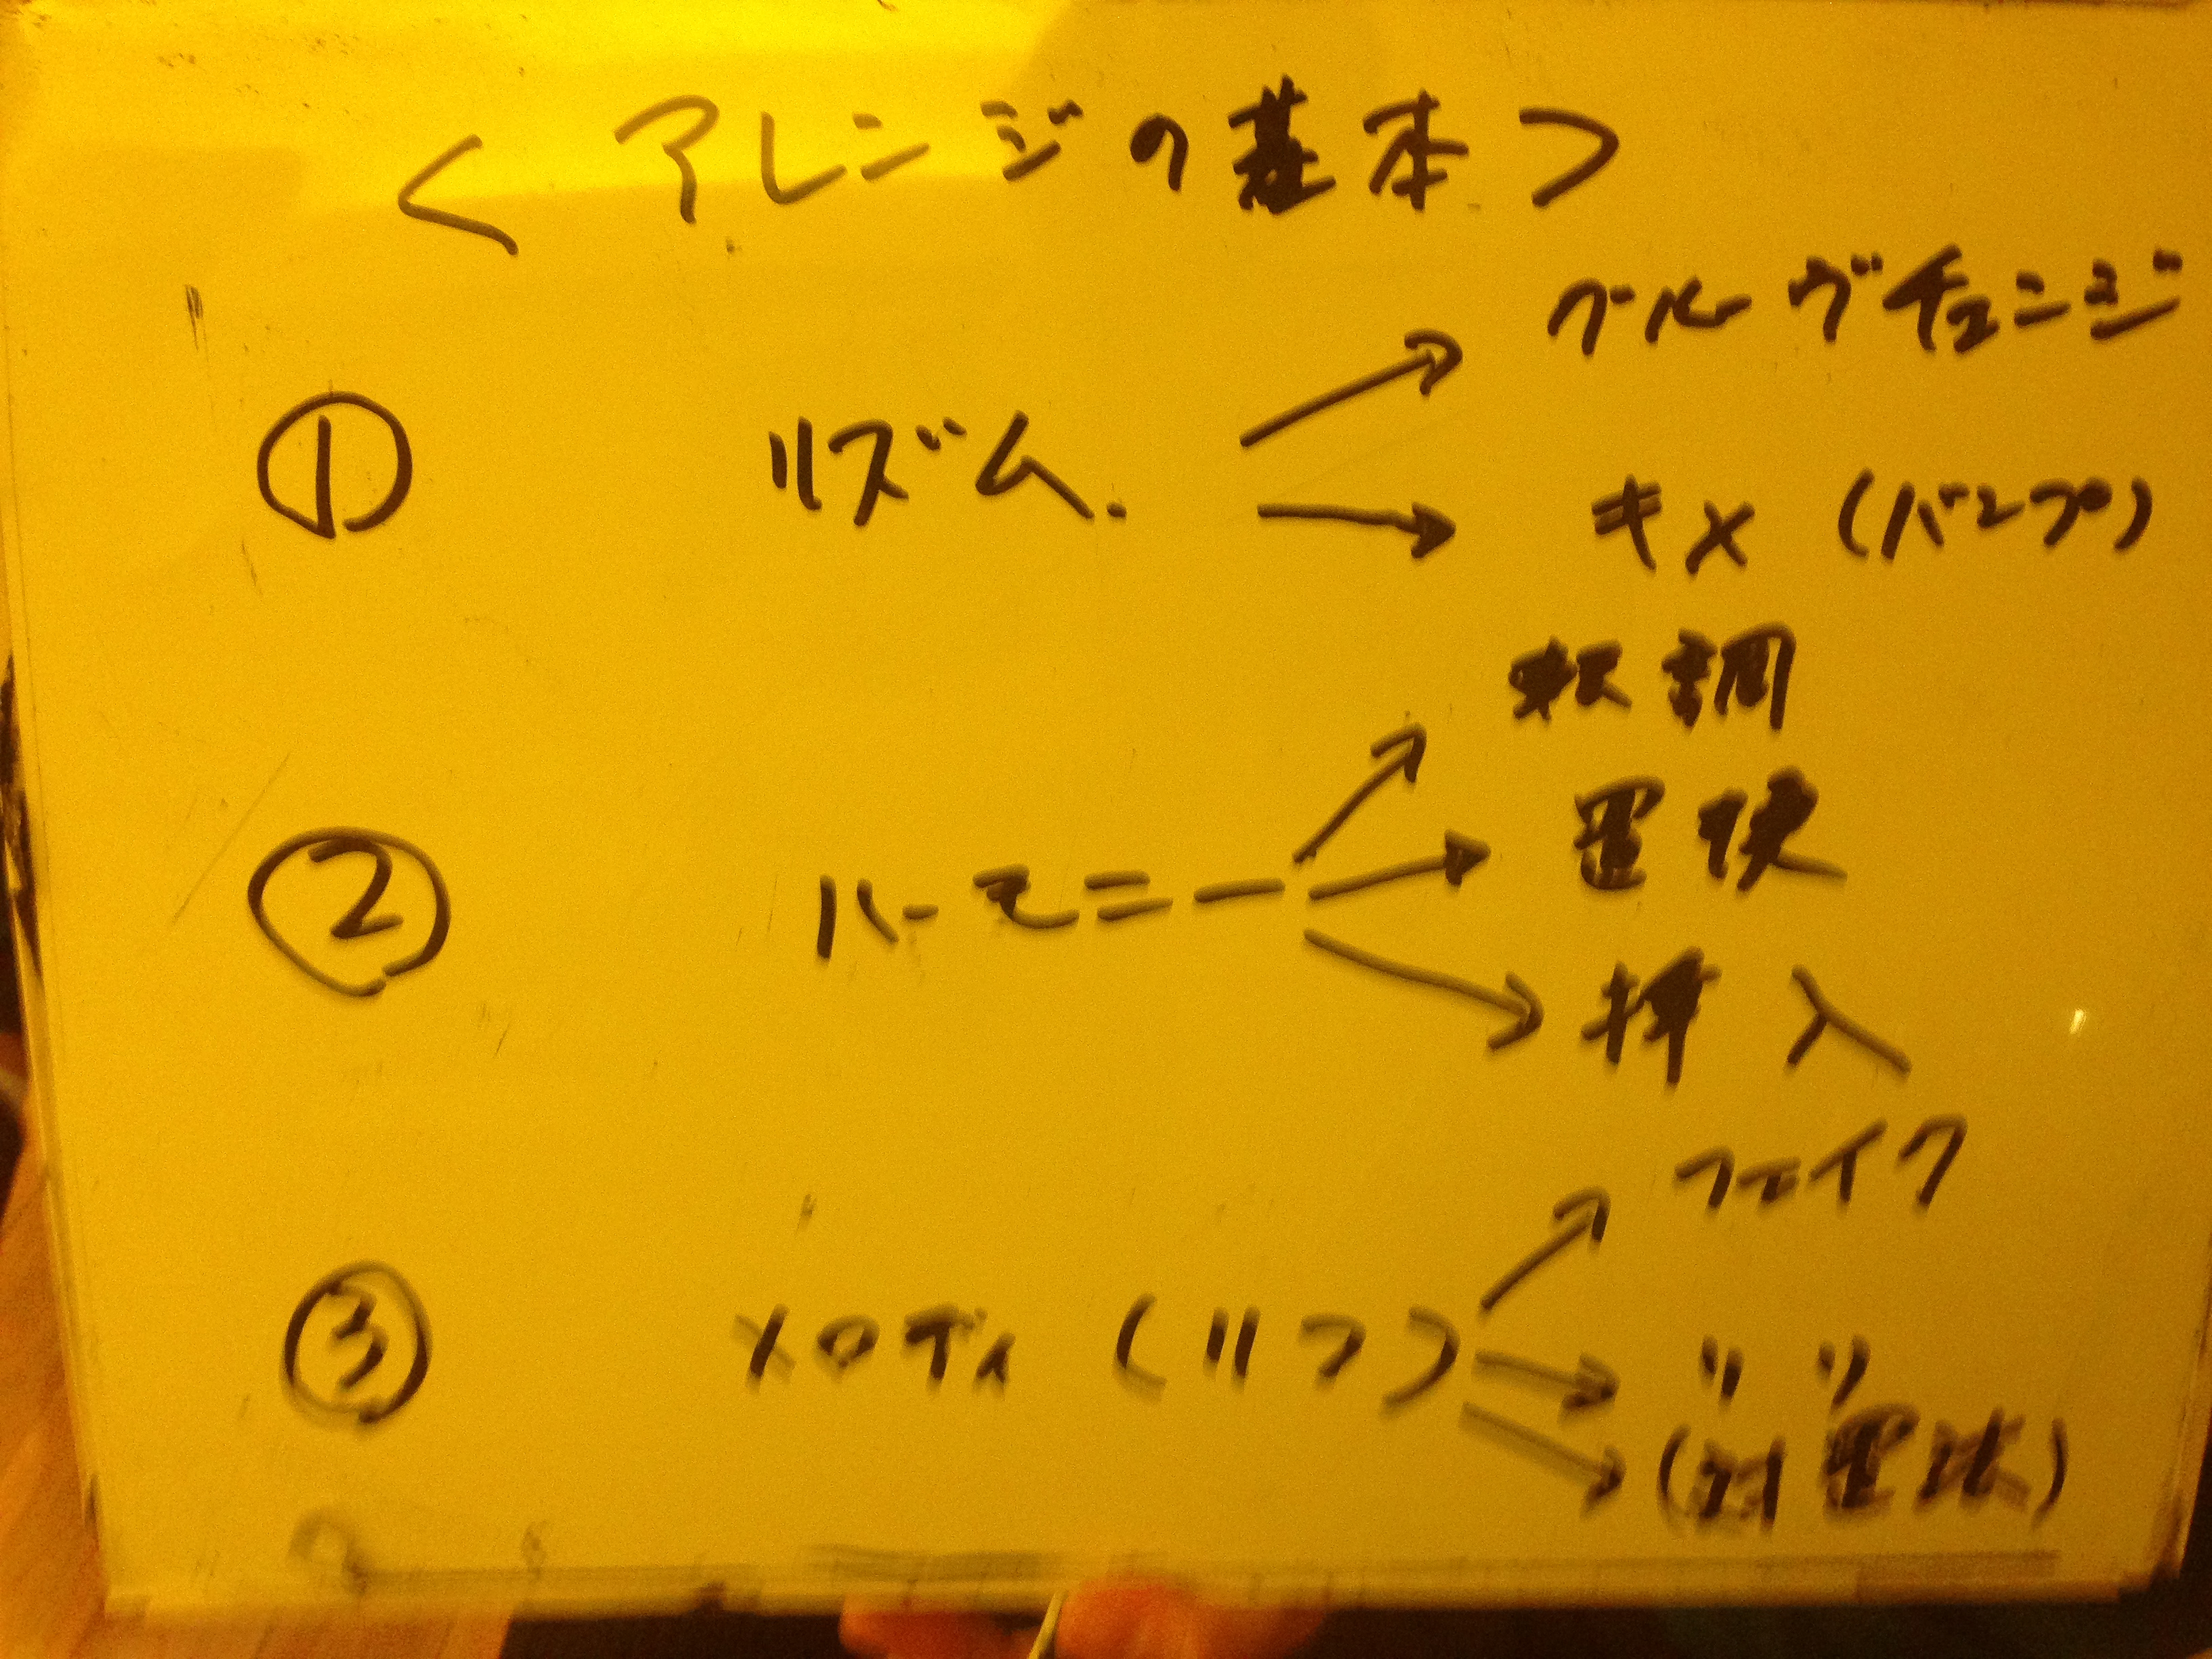 <アレンジの基本>
グルーヴチェンジ
① リズム.
キメ (バンプ)
転調
② ハーモニー
置換
挿入
フェイク
③ メロディ (リフ)
〃 〃